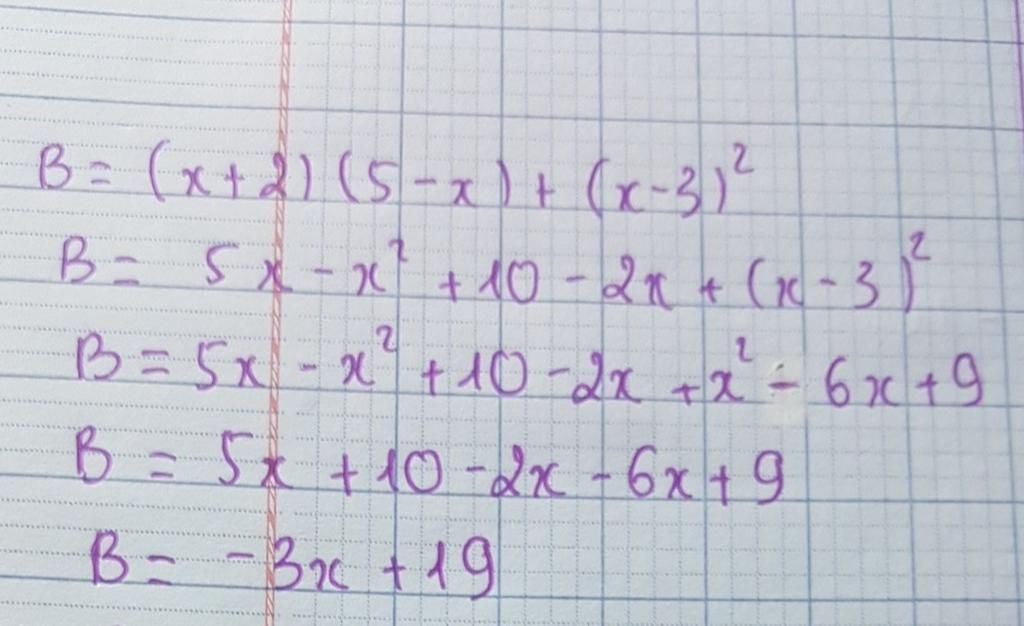 B = (x+2)(5-x) + (x-3)²
B = 5x - x² + 10 - 2x + (x-3)²
B = 5x - x² + 10 - 2x + x² - 6x + 9
B = 5x + 10 - 2x - 6x + 9
B = -3x + 19